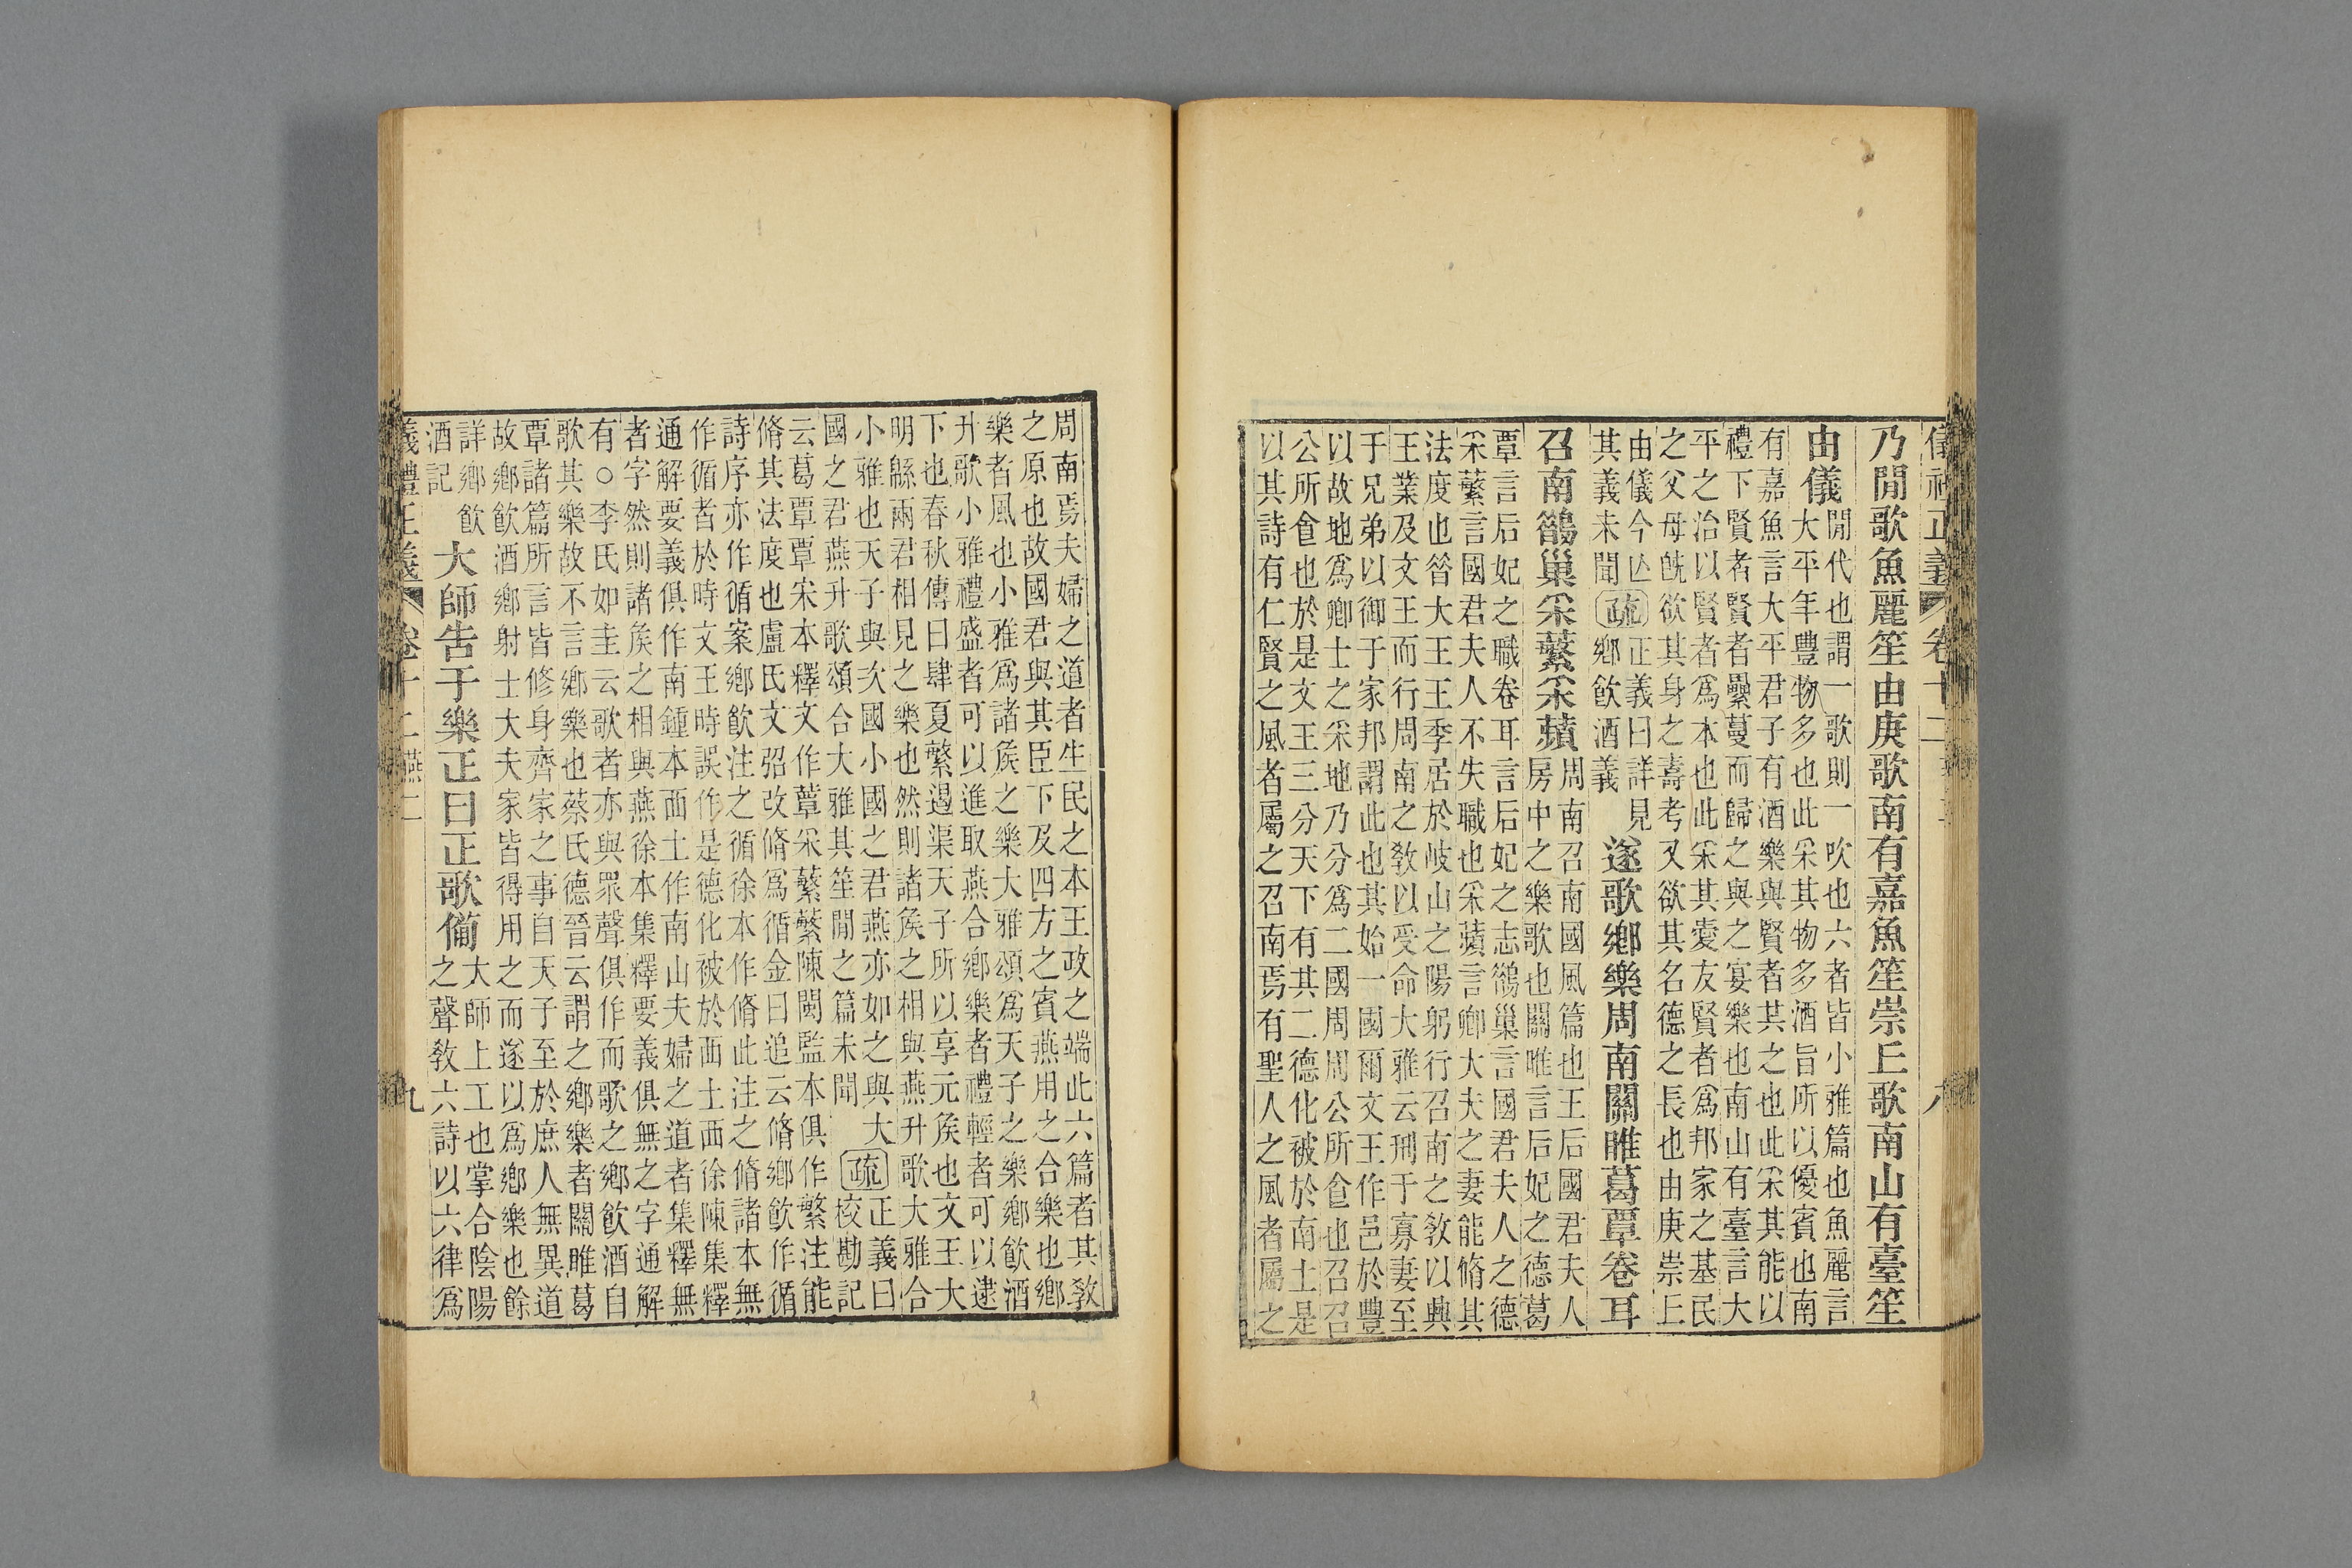 儀禮正義 卷十二 燕二 八
乃閒歌魚麗笙由庚歌南有嘉魚笙崇丘歌南山有臺笙
由儀
閒代也謂一歌則一吹也六者皆小雅篇也魚麗言
大平年豐物多也此采其物多酒旨所以優賓也南
有嘉魚言大平君子有酒樂與賢者其之也此采其能以
禮下賢者賢者纍蔓而歸之與之宴樂也南山有臺言大
平之治以賢者爲本也此采其愛友賢者爲邦家之基民
之父母旣欲其身之壽考又欲其名德之長也由庚崇丘
由儀今亾
其義未聞
疏
正義曰詳見
鄉飮酒義
遂歌鄉樂周南關雎葛覃卷耳
召南鵲巢采蘩采蘋
周南召南國風篇也王后國君夫人
房中之樂歌也關雎言后妃之德葛
覃言后妃之職卷耳言后妃之志鵲巢言國君夫人之德
采蘩言國君夫人不失職也采蘋言卿大夫之妻能脩其
法度也昝大王王季居於岐山之陽躬行召南之敎以興
王業及文王而行周南之敎以受命大雅云刑于寡妻至
于兄弟以御于家邦謂此也其始一國爾文王作邑於豐
以故地爲卿士之采地乃分爲二國周周公所食也召召
公所食也於是文王三分天下有其二德化被於南土是
以其詩有仁賢之風者屬之召南焉有聖人之風者屬之
周南焉夫婦之道者生民之本王政之端此六篇者其敎
之原也故國君與其臣下及四方之賓燕用之合樂也鄉
樂者風也小雅爲諸矦之樂大雅頌爲天子之樂鄉飮酒
升歌小雅禮盛者可以進取燕合鄉樂者禮輕者可以逮
下也春秋傳曰肆夏繁遏渠天子所以享元矦也文王大
明緜兩君相見之樂也然則諸矦之相與燕升歌大雅合
小雅也天子與次國小國之君燕亦如之與大
國之君燕升歌頌合大雅其笙閒之篇未聞
疏
正義曰
校勘記
云葛覃覃宋本釋文作蕈采蘩蘩陳閩監本俱作繁注能
脩其法度也盧氏文弨改脩爲循金曰追云脩鄉飮作循
詩序亦作循案鄉飮注之循徐本作脩此注之脩諸本無
作循者於時文王時誤作是德化被於西土西徐陳集釋
通解要義俱作南鍾本西土作南山夫婦之道者集釋無
者字然則諸矦之相與燕徐本集釋要義俱無之字通解
有○李氏如圭云歌者亦與眾聲俱作而歌之鄉飮酒自
歌其樂故不言鄉樂也蔡氏德晉云謂之鄉樂者關雎葛
覃諸篇所言皆修身齊家之事自天子至於庶人無異道
故鄉飮酒鄉射士大夫家皆得用之而遂以爲鄉樂也餘
詳鄉飮
酒記
大師告于樂正曰正歌備
大師上工也掌合陰陽
之聲敎六詩以六律爲
義禮正義 卷十二 燕二 九